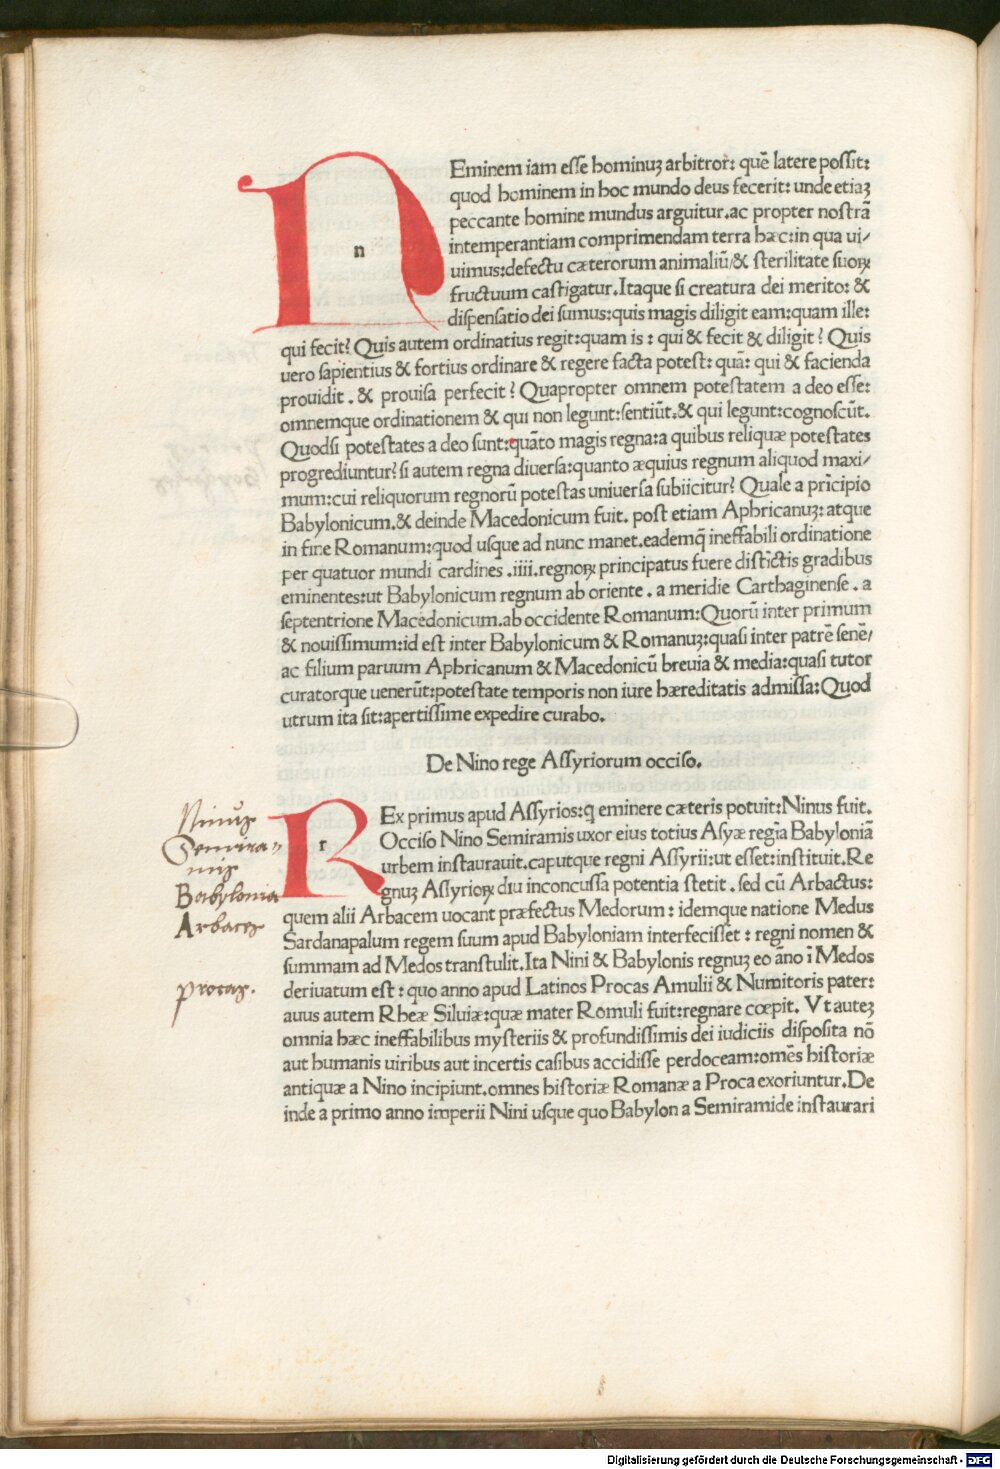 NEminem iam esse hominuꝫ arbitror: quē latere possit:
quod hominem in hoc mundo deus fecerit: unde etiaꝫ
peccante homine mundus arguitur. ac propter nostrā
intemperantiam comprimendam terra hæc: in qua ui/
uimus: defectu cæterorum animaliū/ & sterilitate suoꝝ
fructuum castigatur. Itaque si creatura dei merito: &
dispensatio dei sumus: quis magis diligit eam: quam ille:
qui fecit? Quis autem ordinatius regit: quam is: qui & fecit & diligit? Quis
uero sapientius & fortius ordinare & regere facta potest: quā: qui & facienda
prouidit. & prouisa perfecit? Quapropter omnem potestatem a deo esse:
omnemque ordinationem & qui non legunt: sentiūt. & qui legunt: cognoscūt.
Quodsi potestates a deo sunt: quāto magis regna: a quibus reliquæ potestates
progrediuntur? si autem regna diuersa: quanto æquius regnum aliquod maxi/
mum: cui reliquorum regnorū potestas uniuersa subiicitur? Quale a prīcipio
Babylonicum. & deinde Macedonicum fuit. post etiam Aphricanuꝫ: atque
in fine Romanum: quod usque ad nunc manet. eademq̄ ineffabili ordinatione
per quatuor mundi cardines .iiii. regnoꝝ principatus fuere distīctis gradibus
eminentes: ut Babylonicum regnum ab oriente. a meridie Carthaginense. a
septentrione Macedonicum. ab occidente Romanum: Quorū inter primum
& nouissimum: id est inter Babylonicum & Romanuꝫ: quasi inter patrē senē/
ac filium paruum Aphricanum & Macedonicū breuia & media: quasi tutor
curatorque uenerūt: potestate temporis non iure hæreditatis admissa: Quod
utrum ita sit: apertissime expedire curabo.
De Nino rege Assyriorum occiso.
REx primus apud Assyrios: q eminere cæteris potuit: Ninus fuit.
Occiso Nino Semiramis uxor eius totius Asyæ regīa Babyloniā
urbem instaurauit. caputque regni Assyrii: ut esset: instituit. Re
gnuꝫ Assyrioꝝ diu inconcussa potentia stetit. sed cū Arbactus:
quem alii Arbacem uocant præfectus Medorum: idemque natione Medus
Sardanapalum regem suum apud Babyloniam interfecisset: regni nomen &
summam ad Medos transtulit. Ita Nini & Babylonis regnuꝫ eo āno ī Medos
deriuatum est: quo anno apud Latinos Procas Amulii & Numitoris pater:
auus autem Rheæ Siluiæ: quæ mater Romuli fuit: regnare cœpit. Vt auteꝫ
omnia hæc ineffabilibus mysteriis & profundissimis dei iudiciis disposita nō
aut humanis uiribus aut incertis casibus accidisse perdoceam: omēs historiæ
antiquæ a Nino incipiunt. omnes historiæ Romanæ a Proca exoriuntur. De
inde a primo anno imperii Nini usque quo Babylon a Semiramide instaurari
Ninus
Semira-
mis
Babylonia
Arbaces
procas.
Digitalisierung gefördert durch die Deutsche Forschungsgemeinschaft - DFG